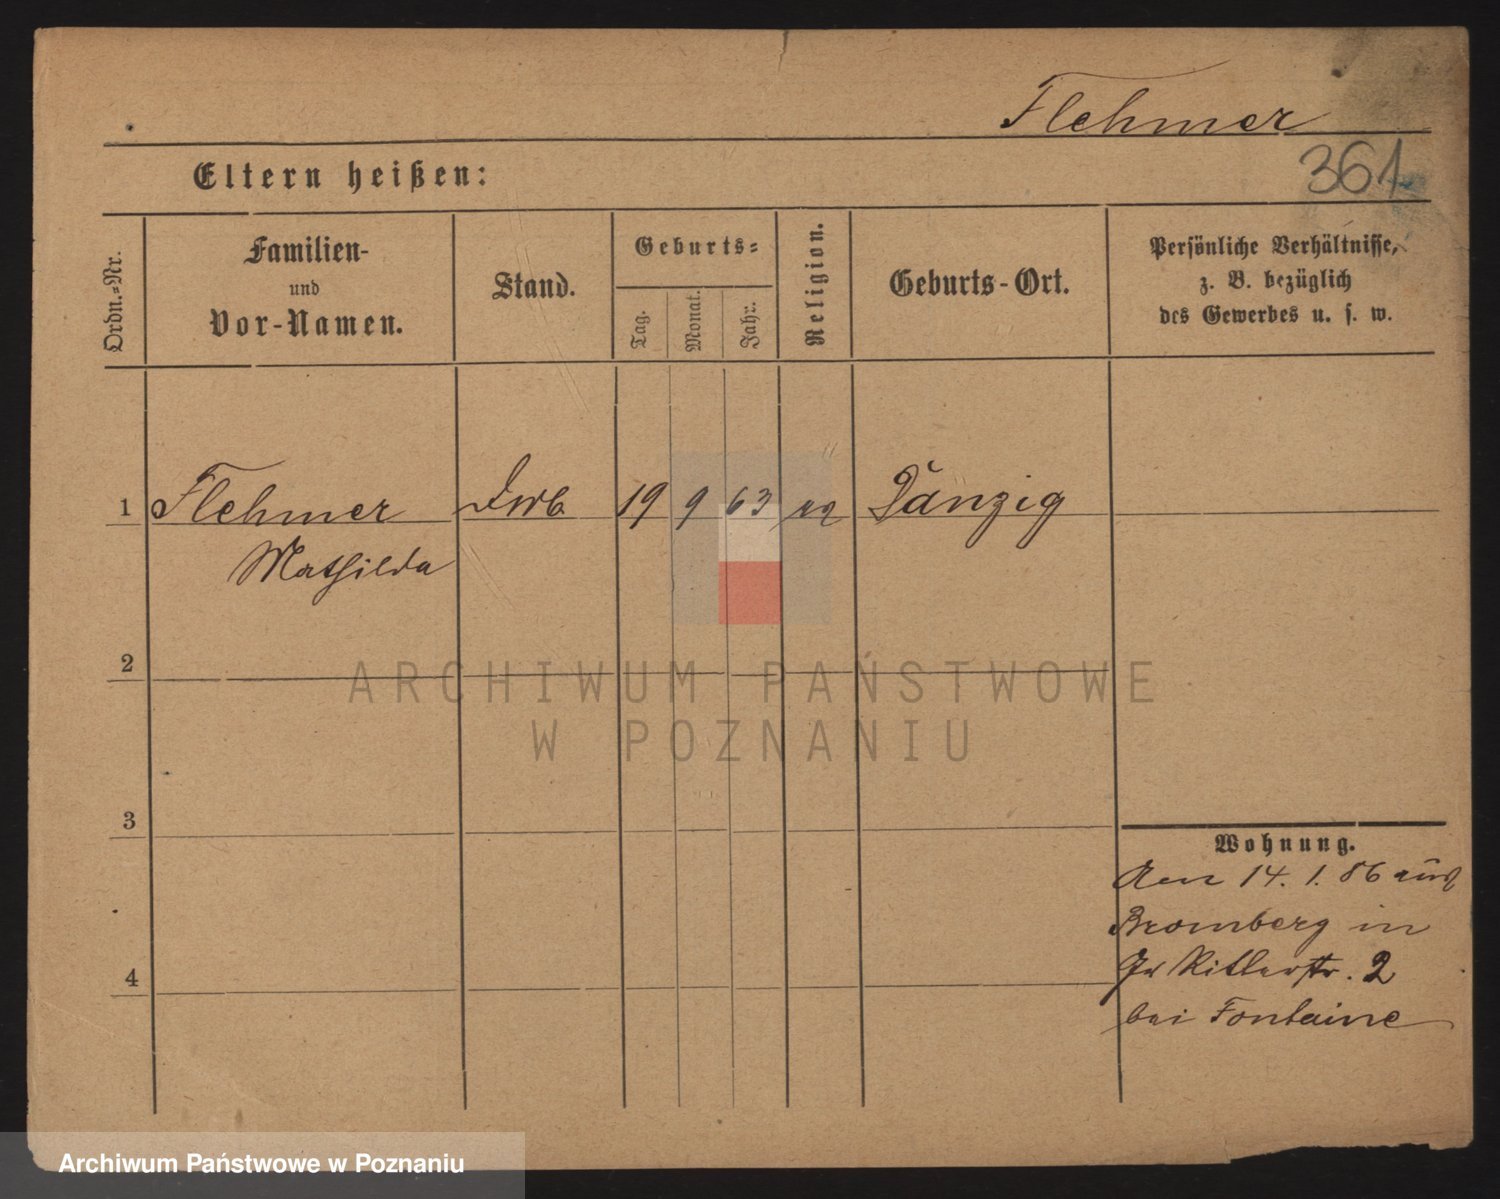 Flehmer
Eltern heißen:
361
Ordn.-Nr.
Familien-
und
Vor-Namen.
Stand.
Geburts-
Tag.
Monat.
Jahr.
Religion.
Geburts-Ort.
Persönliche Verhältnisse,
z. B. bezüglich
des Gewerbes u. s. w.
1 Flehmer 19 9 63 Danzig
Mathilda
2
ARCHIWUM PAŃSTWOWE
W POZNANIU
3
Wohnung.
14. 1. 86 aus
Bromberg in
Gr Ritterstr. 2
bei Fontaine
4
Archiwum Państwowe w Poznaniu